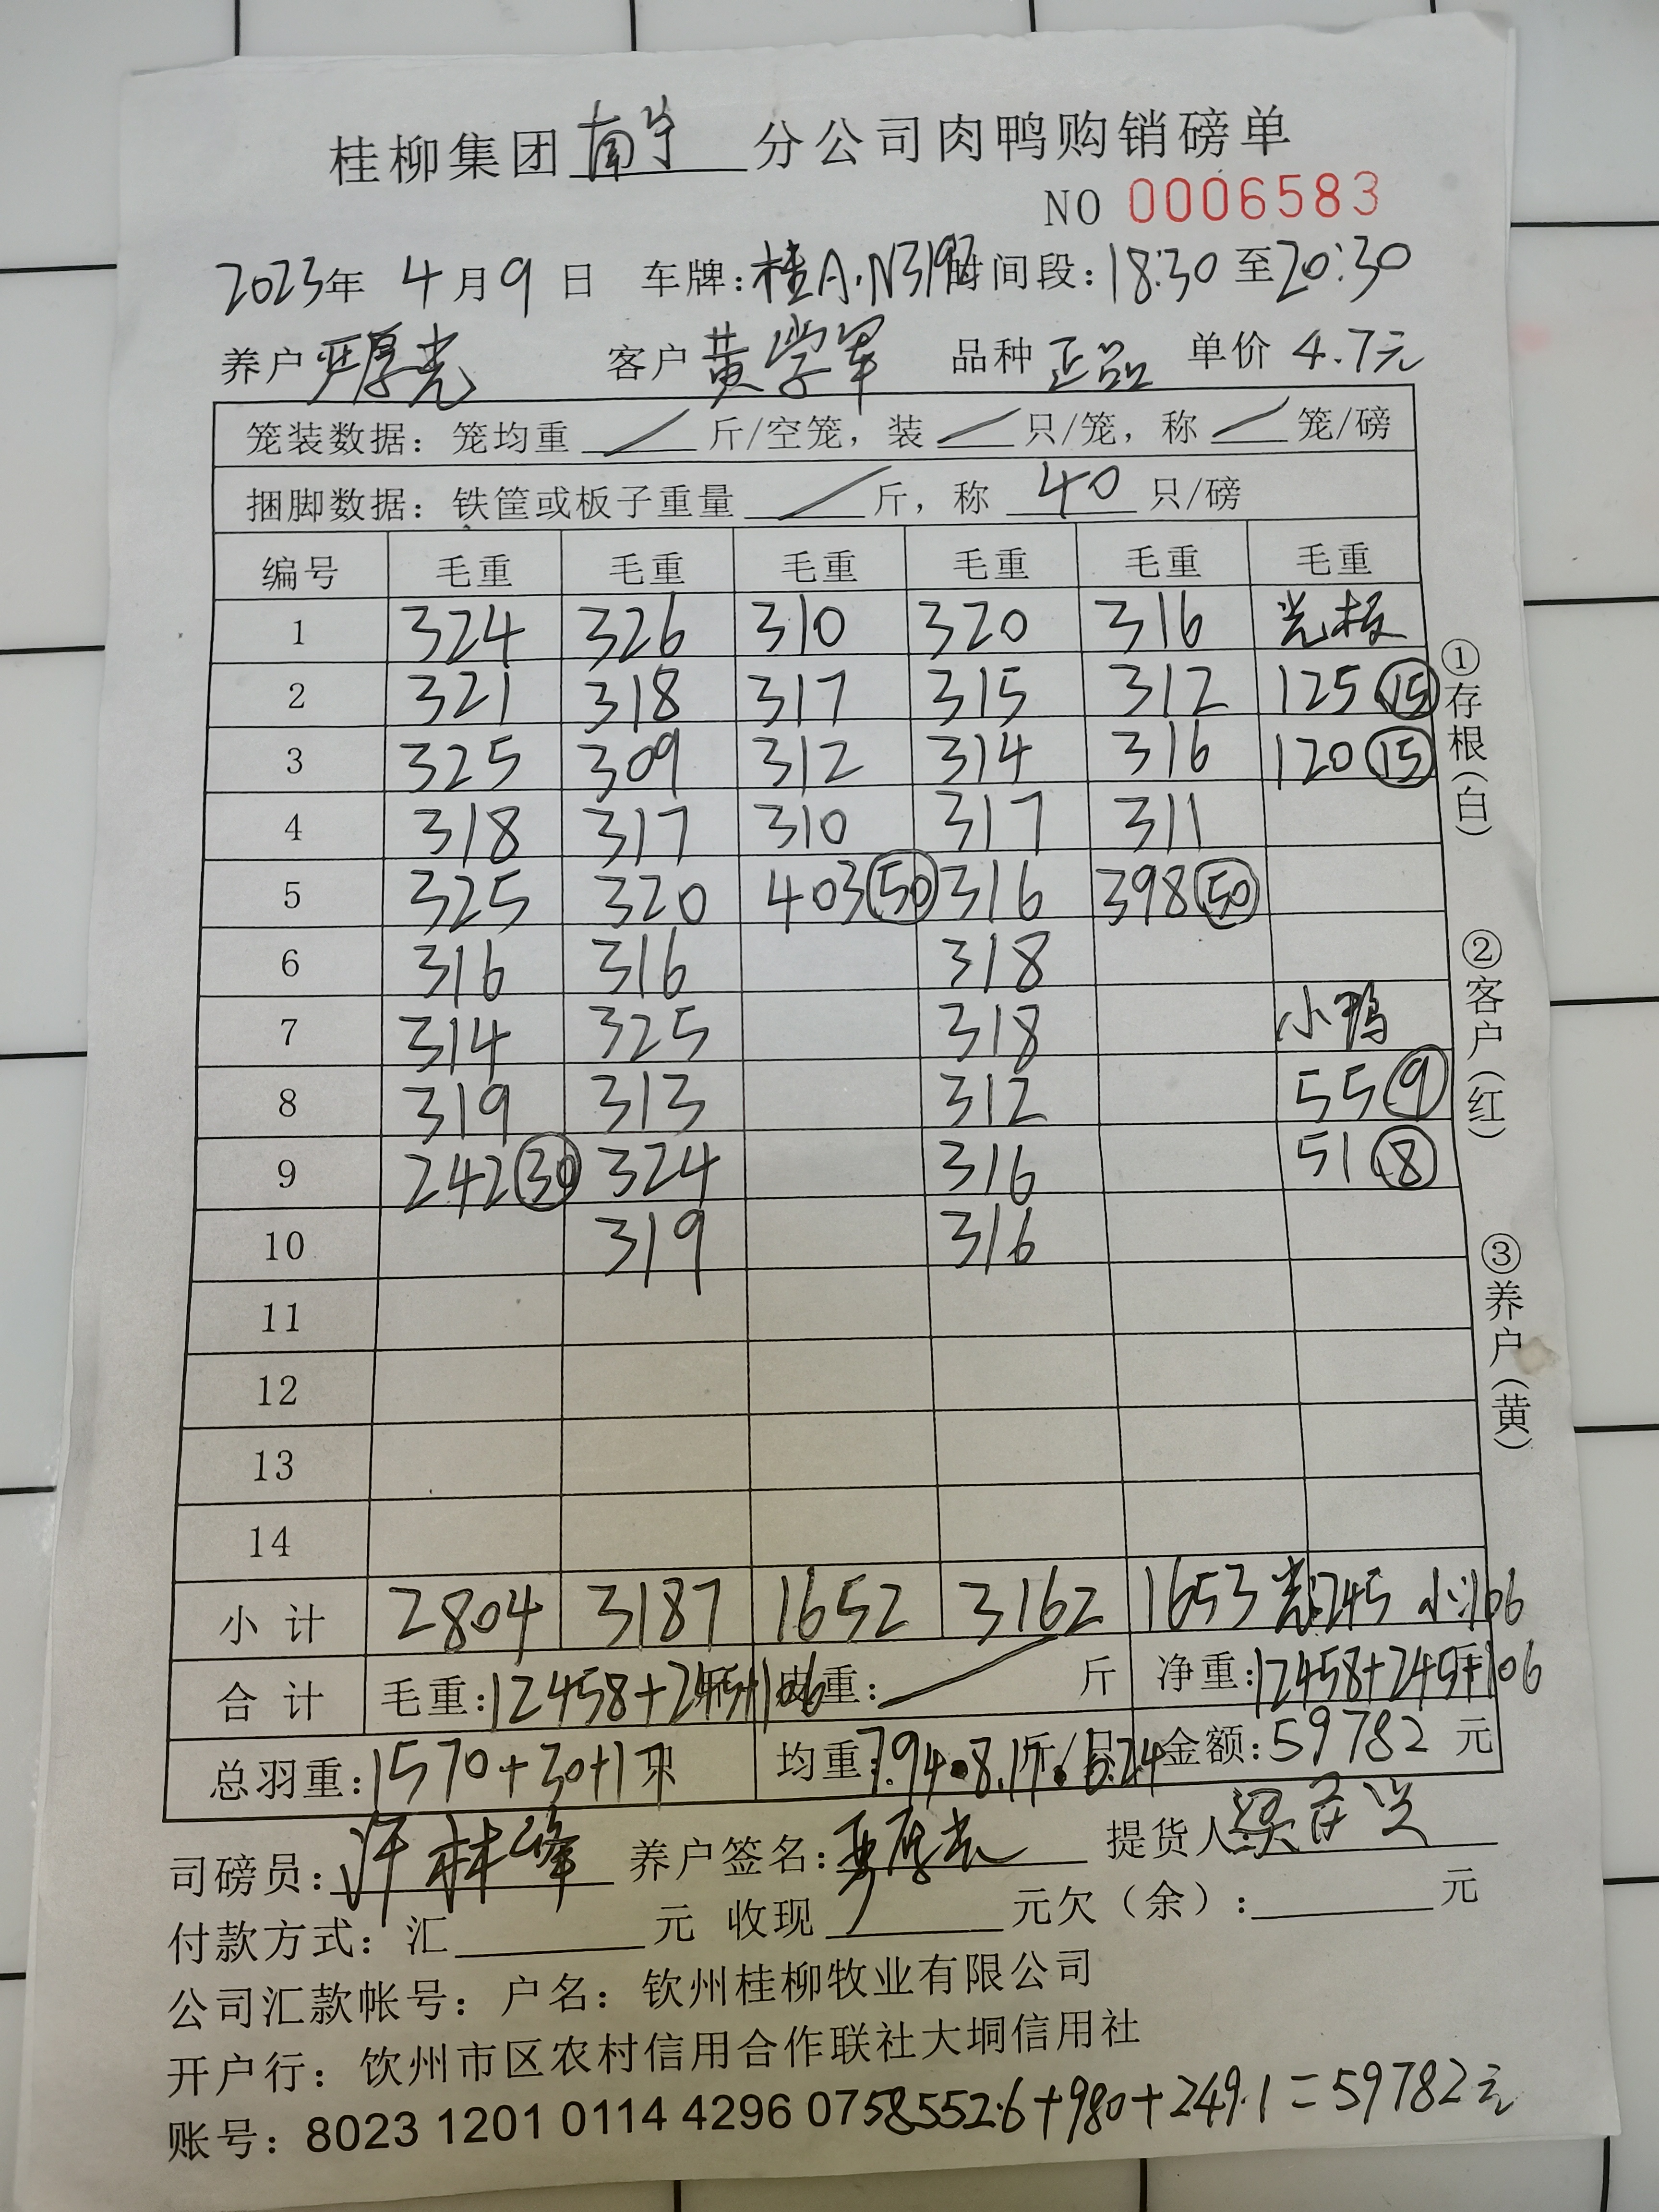 桂柳集团南宁分公司肉鸭购销磅单
NO 0006583
2023年 4月9日 车牌:桂A·N319 时间段:18:30至20:30
养户 厚光 客户 黄学军 品种 正品 单价 4.7元
笼装数据：笼均重 / 斤/空笼，装 / 只/笼，称 / 笼/磅
捆脚数据：铁筐或板子重量 / 斤，称 40 只/磅
编号 毛重 毛重 毛重 毛重 毛重 毛重
1 324 326 310 320 316 光板
2 321 318 317 315 312 125 ⑮
3 325 309 312 314 316 120 ⑮
4 318 317 310 317 311
5 325 320 403 ㊿ 316 398 ㊿
6 316 316 318
7 314 325 318 小鸭
8 319 313 312 55 ⑨
9 242 ㉚ 324 316 51 ⑧
10 319 316
11
12
13
14
小计 2804 3187 1652 3162 1653 光:245 小:106
合计 毛重:12458+245+106 皮重: / 斤 净重:12458+245+106
总羽重:1570+30+17只 均重:7.94·8.17·6.24 金额:59782元
司磅员:许林峰 养户签名:厚光 提货人:
付款方式：汇 元 收现 元欠（余）: 元
公司汇款帐号：户名：钦州桂柳牧业有限公司
开户行：钦州市区农村信用合作联社大垌信用社
账号：8023 1201 0114 4296 07 58552.6+980+249.1=59782元
①存根(白)
②客户(红)
③养户(黄)